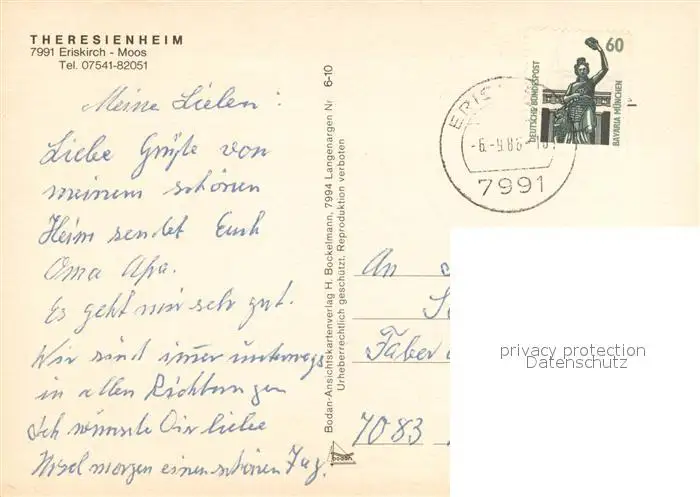 THERESIENHEIM
7991 Eriskirch - Moos
Tel. 07541-82051
Meine Lieben!
Liebe Grüße von
meinem schönen
Heim sendet Euch
Oma
Es geht mir sehr gut.
Wir sind immer unterwegs
in allen Richtungen
Ich wünsche Dir liebe
morgen einen schönen Tag.
Bodan-Ansichtskartenverlag H. Bockelmann, 7994 Langenargen Nr 6-10
Urheberrechtlich geschützt. Reproduktion verboten
bodan
ERIS
-6.-9.88-
7991
60
DEUTSCHE BUNDESPOST
BAVARIA MÜNCHEN
An
Faber
7083
privacy protection
Datenschutz